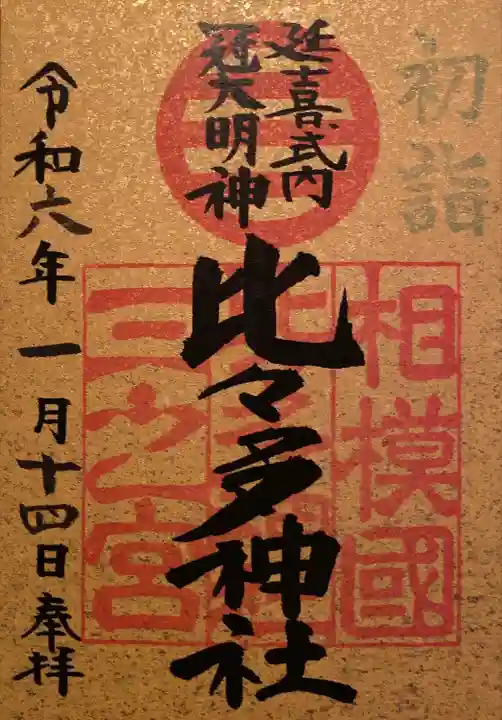 初詣
延喜式内
冠大明神
比々多神社
相模國
比々多神社
三之宮
令和六年 一月十四日奉拝